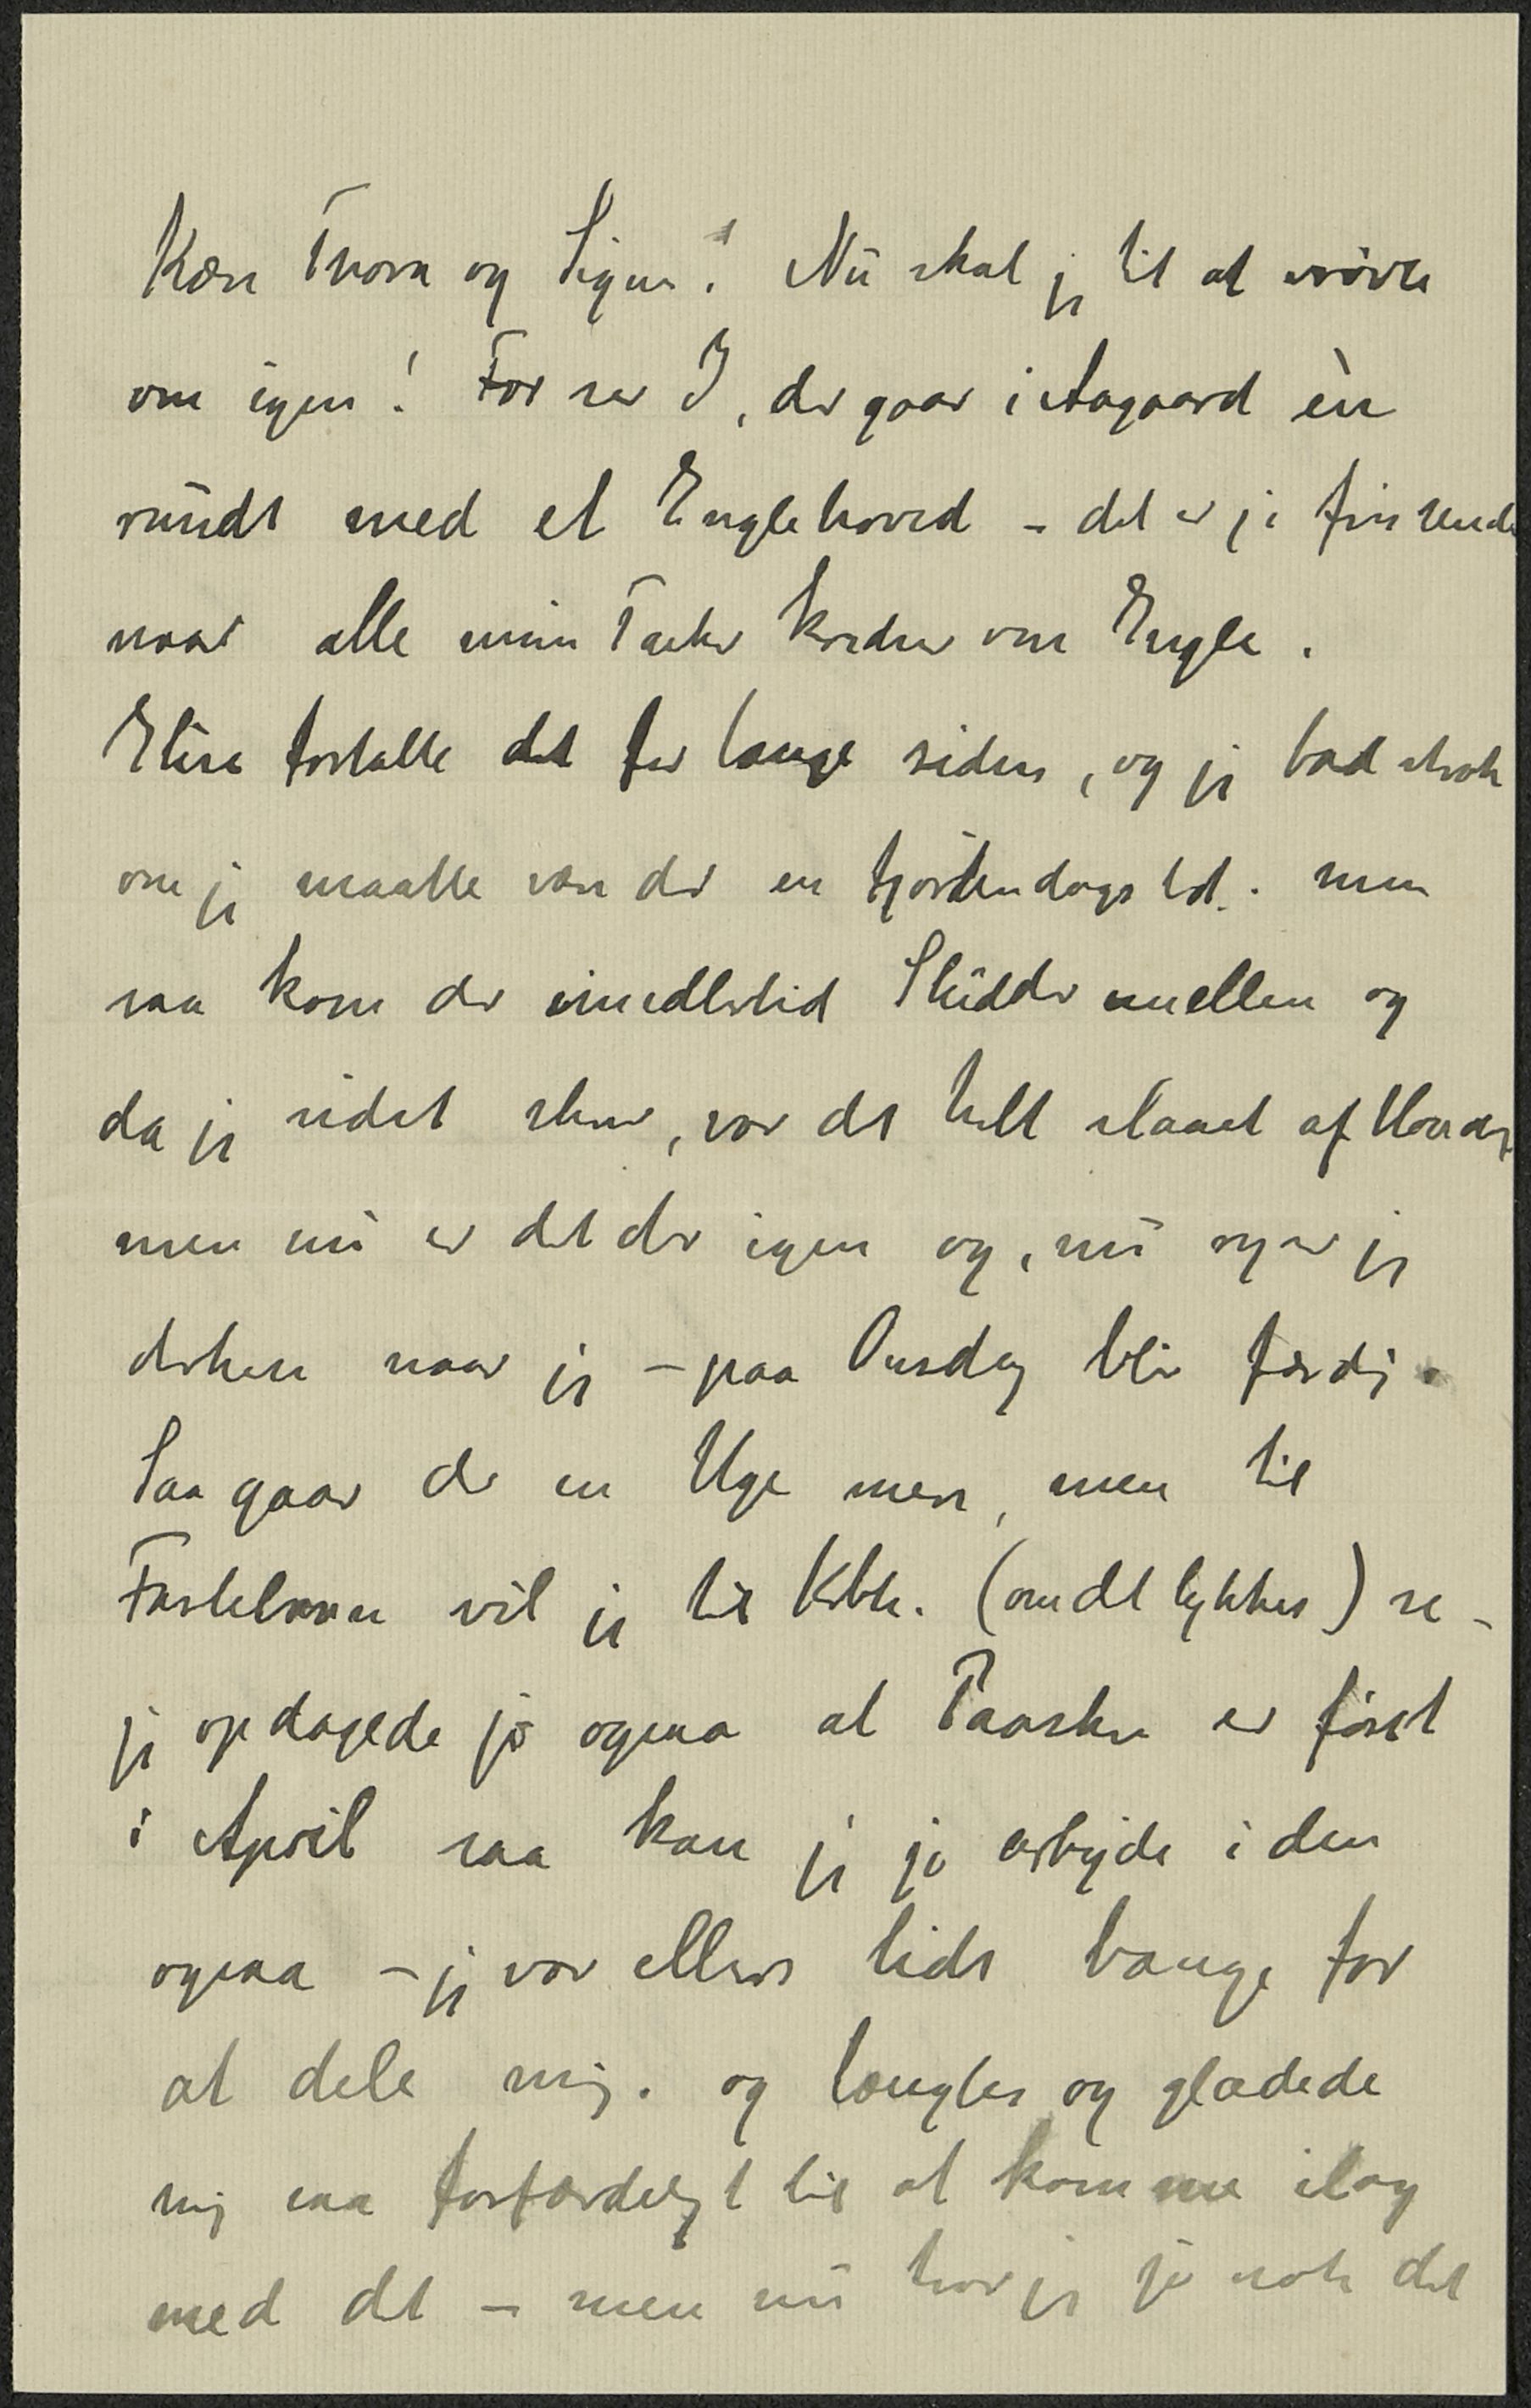 Kære Thora og Signe! Nu skal jeg til at vrøvle
om igen! For ser I, der gaar i Aagaard èn
rundt med et Englehoved – det er jo
naar alle mine Tanker kredser om Engle.
Elise fortalte det for længe siden, og jeg bad straks
om jeg maatte være der en fjortendagstid. men
saa kom der imidlertid Sludder mellem og
da jeg sidst skrev, var det helt slaaet af
men nu er det der igen og, nu ryger jeg
derhen naar jeg – paa Onsdag blir færdig.
Saa gaar der en Uge mere, men til
Fastelavn vil jeg til Kbh. (om det lykkes) se –
jeg opdagede jo ogsaa at Paasken er først
i April saa kan jeg jo arbejde i den
ogsaa – jeg var ellers lidt bange for
at dele mig. og længtes og glædede
mig saa forfærdeligt til at komme ilag
med det – men nu har jeg jo nok det